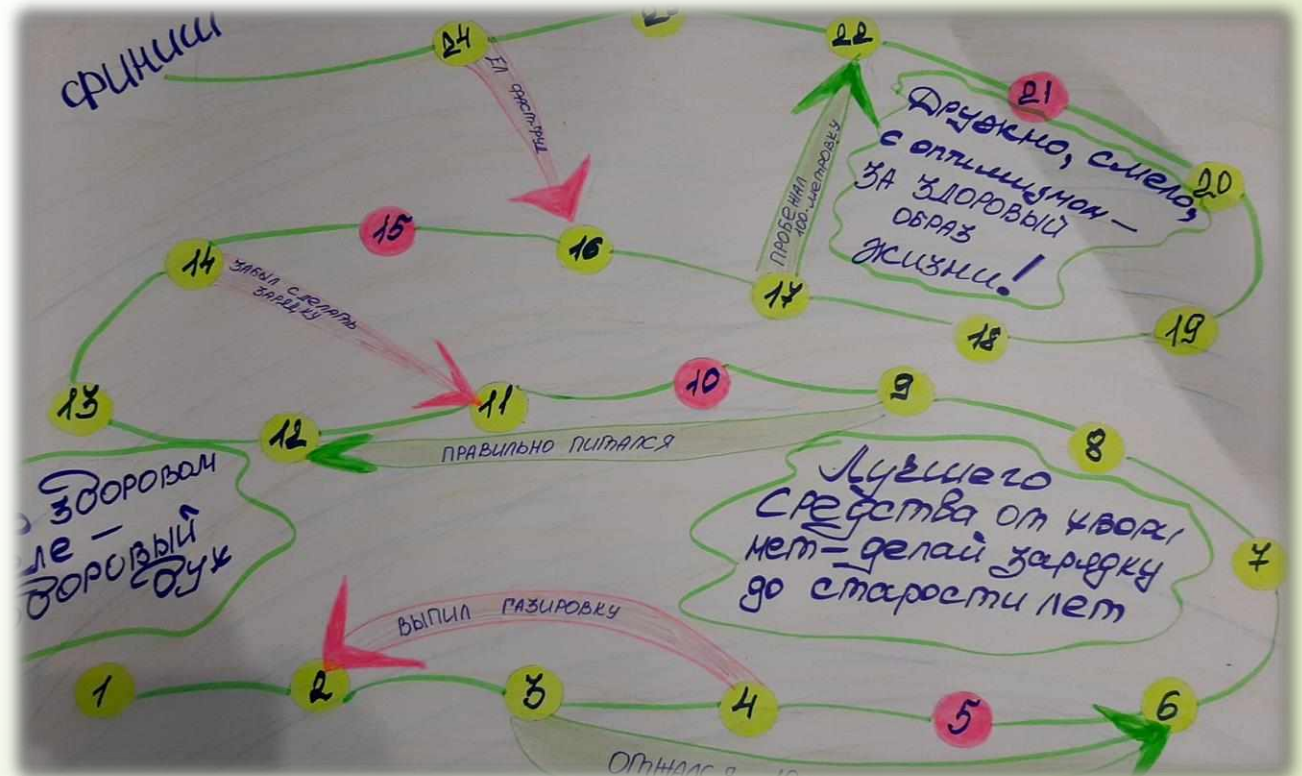 ФИНИШ
24
22
ЕЛ ФАСТ-ФУД
21
Дружно, смело,
с оптимизмом –
ЗА ЗДОРОВЫЙ
ОБРАЗ
жизни!
20
ПРОБЕЖАЛ
100-МЕТРОВКУ
14
15
16
17
18
19
ЗАБЫЛ СДЕЛАТЬ
ЗАРЯДКУ
13
12
11
10
9
8
7
ПРАВИЛЬНО ПИТАЛСЯ
ЗДОРОВОМ
–
ДУХ
Лучшего
Средства от
нет – делай зарядку
до старости лет
ВЫПИЛ ГАЗИРОВКУ
1
2
3
4
5
6
ОТЖАЛСЯ